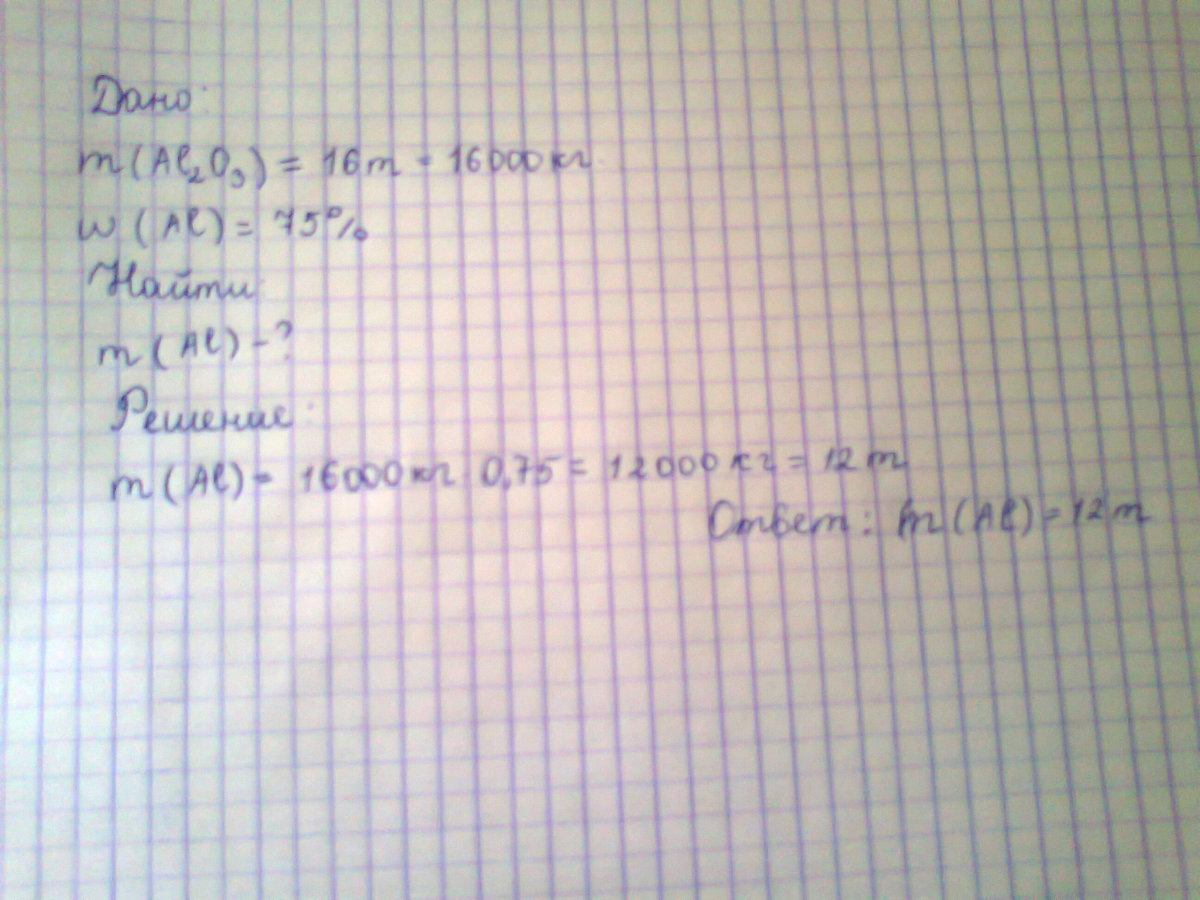 Дано:
m(Al₂O₃) = 16т = 16000кг.
w(Al) = 75%
Найти
m(Al) - ?
Решение:
m(Al) = 16000кг · 0,75 = 12000кг = 12т
Ответ: m(Al) = 12т